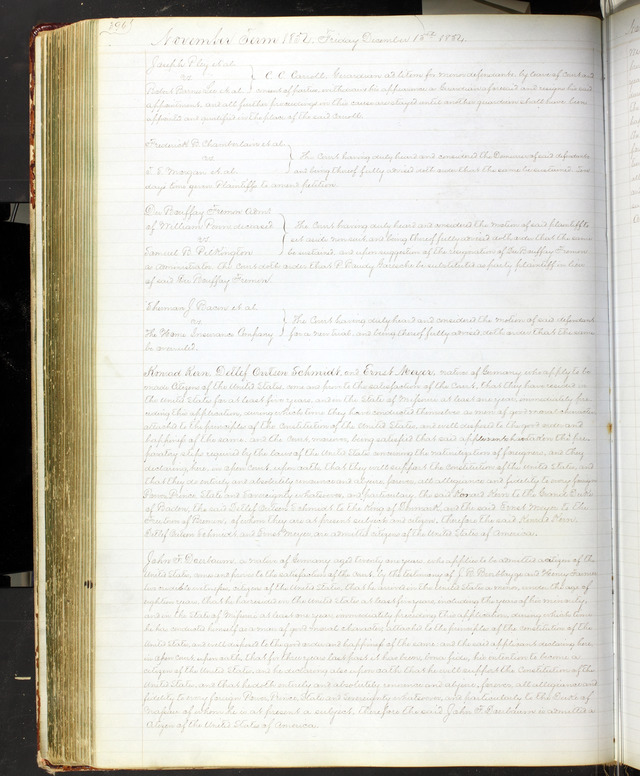 396
November Term 1854. Friday December 15th 1854.
Joseph Pley et al.
vs
Robert Brues Lee et al.
C. C. Carroll Guardian ad litem for minor defendants by leave of Court and
appointment and all further proceedings in this cause are stayed until another guardian shall have been
appointed and qualified in the place of the said Carroll.
Frederick B. Chamberlain et al.
vs
T. E. Morgan et al.
The Court having duly heard and considered the Demurrer of said defendants
and being thereof fully advised doth order that the same be sustained
days time given Plaintiffs to amend petition.
Du Bouffay Fremon Admr
of William Penn deceased
vs
Samuel B. Pilkington
The Court having duly heard and considered the motion of said plaintiff to
set aside nonsuit and being thereof fully advised doth order that the same
be sustained and upon suggestion of the resignation of Du Bouffay Fremon
as administrator the Court doth order that P. Dexter be substituted as party plaintiff in lieu
of said Du Bouffay Fremon.
et al.
vs
The Home Insurance Company
The Court having duly heard and considered the motion of said defendant
for a new trial, and being thereof fully advised, doth order that the same
be overruled.
Konrad Kern, Detlef Schmidt, and Ernst Meyer, natives of Germany who apply to be
made citizens of the United States, come and prove to the satisfaction of the Court, that they have resided in
the United States for at least five years, and in the State of Missouri at least one year immediately pre-
ceding this application, during which time they have conducted themselves as men of good moral character
attached to the principles of the Constitution of the United States, and well disposed to the good order and
happiness of the same. and the Court moreover being satisfied that said applicants have taken the pre-
paratory steps required by the laws of the United States concerning the naturalization of foreigners, and they
declaring here in open Court upon oath, that they will support the Constitution of the United States, and
that they do entirely and absolutely renounce and abjure forever all allegiance and fidelity to every foreign
Power, Prince, State and Sovereignty whatsoever, and particularly, the said Konrad Kern to the Grand Duke
of Baden, the said Detlef Schmidt to the King of Denmark, and the said Ernst Meyer to the
of Bremen, of whom they are at present subjects and citizens, therefore the said Konrad Kern,
Detlef Schmidt and Ernst Meyer are admitted citizens of the United States of America.
John F. a native of Germany aged twenty one years, who applies to be admitted a citizen of the
United States, comes and proves to the satisfaction of the Court, by the testimony of J. C. and Henry
two credible citizens of the United States that he arrived in the United States a minor, under the age of
eighteen years, that he has resided in the United States at least five years, including the years of his minority
and in the State of Missouri at least one year immediately preceding this application, during which time
he has conducted himself as a man of good moral character, attached to the principles of the constitution of the
United States, and well disposed to the good order and happiness of the same. and the said applicant declaring here
in open Court upon oath, that for three years last past it has been bona fide, his intention to become a
citizen of the United States, and he declaring also upon oath that he will support the Constitution of the
United States, and that he doth entirely and absolutely renounce and abjure forever all allegiance and
fidelity to every foreign Power, Prince, State and Sovereignty whatsoever, and particularly to the Duke of
of whom he is at present a subject. therefore the said John F. is admitted a
citizen of the United States of America.